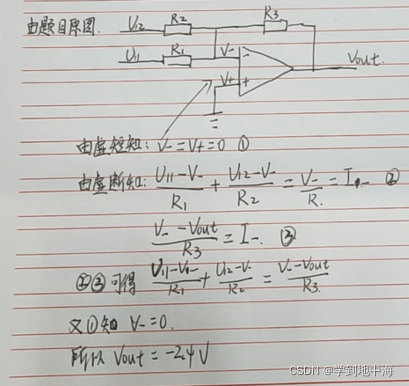 由题目原图.
Ui2 R2 R3
Ui1 R1 V- - Vout.
V+ +
由虚短知: V- = V+ = 0 ①
由虚断知: (Ui1-V-)/R1 + (Ui2-V-)/R2 = V-/R. = I- ②
(V- - Vout)/R3 = I-. ③
②③可得 (Ui1-V-)/R1 + (Ui2-V-)/R2 = (V- - Vout)/R3.
又①知 V- = 0.
所以 Vout = -2.4V
CSDN @学到地中海